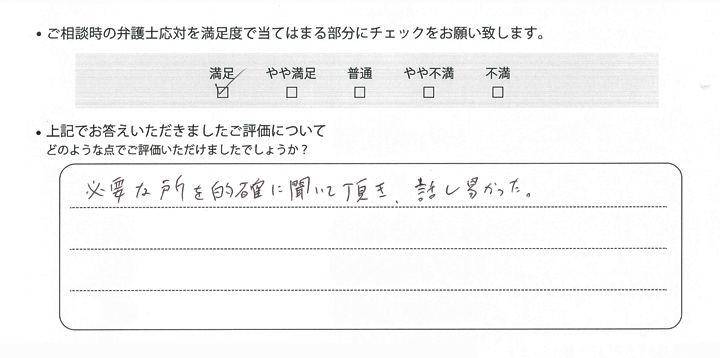 • ご相談時の弁護士応対を満足度で当てはまる部分にチェックをお願い致します。
満足 やや満足 普通 やや不満 不満
☑ □ □ □ □
• 上記でお答えいただきましたご評価について
どのような点でご評価いただけましたでしょうか？
必要な所を的確に聞いて頂き、話し易かった。